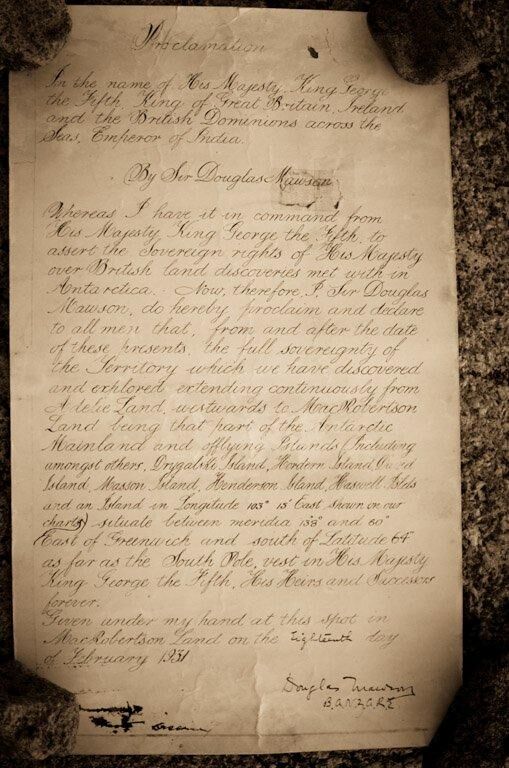 Proclamation
In the name of His Majesty King George
the Fifth, King of Great Britain, Ireland
and the British Dominions across the
Seas, Emperor of India.
By Sir Douglas Mawson
Whereas I have it in command from
His Majesty King George the Fifth, to
assert the Sovereign rights of His Majesty
over British land discoveries met with in
Antarctica. Now, therefore, I, Sir Douglas
Mawson, do hereby proclaim and declare
to all men that, from and after the date
of these presents, the full sovereignty of
the Territory which we have discovered
and explored extending continuously from
Adelie Land, westwards to MacRobertson
Land being that part of the Antarctic
Mainland and offlying Islands (Including
amongst others, Drygalski Island, Hordern Island, David
Island, Masson Island, Henderson Island, Haswell Islets
and an Island in Longitude 103° 15' East shown on our
charts) situate between meridia 138° and 60°
East of Greenwich and south of Latitude 64°
as far as the South Pole, vest in His Majesty
King George the Fifth, His Heirs and Successors
forever.
Given under my hand at this spot in
MacRobertson Land on the Eighteenth day
of February 1931
Douglas Mawson
B.A.N.Z.A.R.E